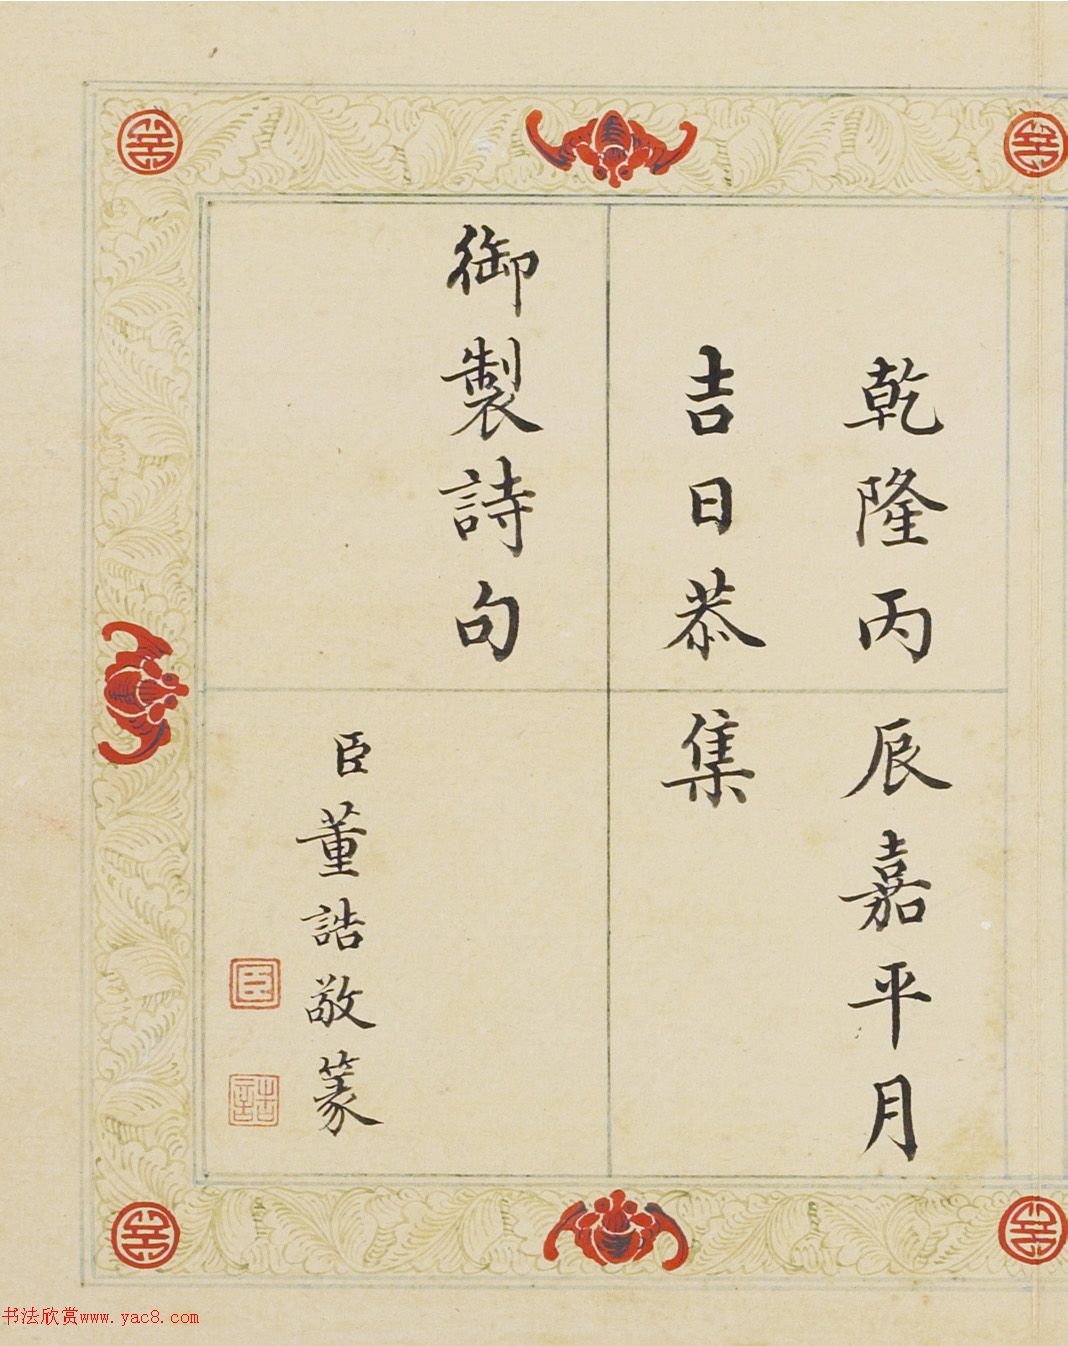 乾隆丙辰嘉平月
吉日恭集
御製詩句
臣董誥敬篆
臣
誥
书法欣赏www.yac8.com